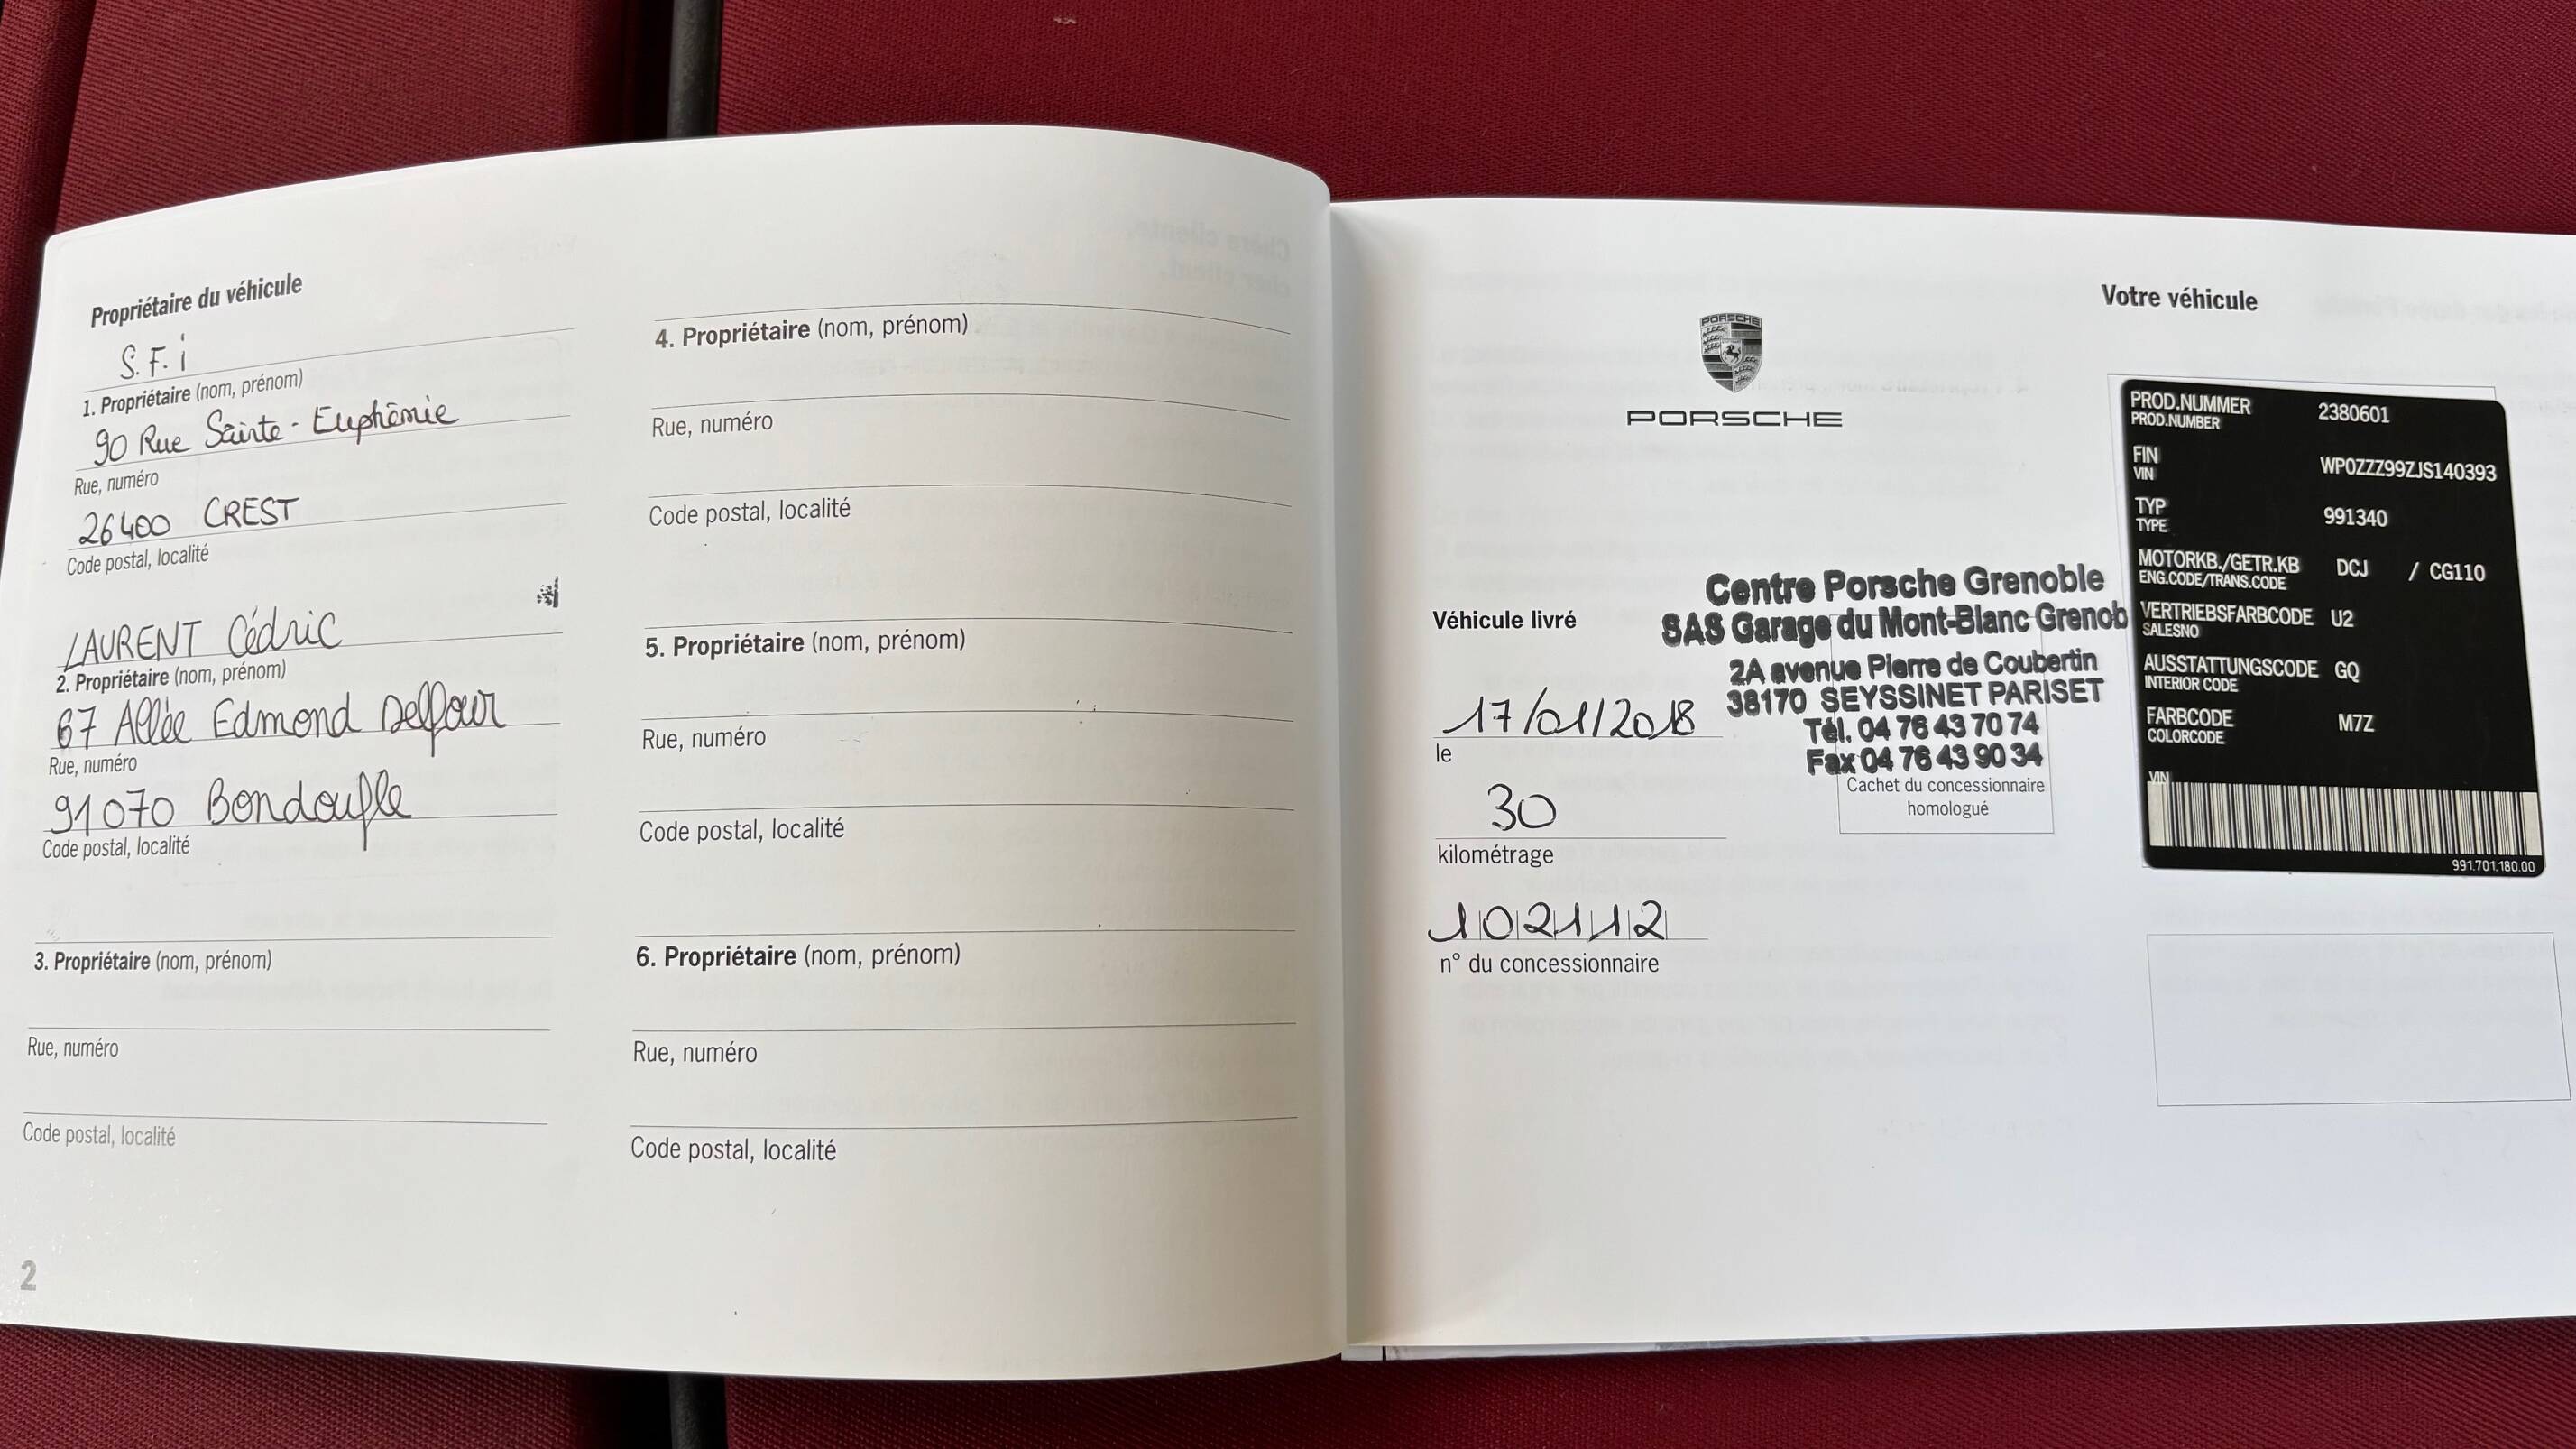 Propriétaire du véhicule
S.F.i
1. Propriétaire (nom, prénom)
90 Rue Sainte-Euphêmie
Rue, numéro
26400 CREST
Code postal, localité
LAURENT Cédric
2. Propriétaire (nom, prénom)
67 Allée Edmond Delfour
Rue, numéro
91070 Bondoufle
Code postal, localité
3. Propriétaire (nom, prénom)
Rue, numéro
Code postal, localité
4. Propriétaire (nom, prénom)
Rue, numéro
Code postal, localité
5. Propriétaire (nom, prénom)
Rue, numéro
Code postal, localité
6. Propriétaire (nom, prénom)
Rue, numéro
Code postal, localité
2
PORSCHE
PORSCHE
Véhicule livré
17/01/2018
le
30
kilométrage
102112
n° du concessionnaire
Centre Porsche Grenoble
SAS Garage du Mont-Blanc Grenob
2A avenue Pierre de Coubertin
38170 SEYSSINET PARISET
Tél. 04 76 43 70 74
Fax 04 76 43 90 34
Cachet du concessionnaire
homologué
Votre véhicule
PROD.NUMMER 2380601
PROD.NUMBER
FIN WP0ZZZ99ZJS140393
VIN
TYP 991340
TYPE
MOTORKB./GETR.KB DCJ / CG110
ENG.CODE/TRANS.CODE
VERTRIEBSFARBCODE U2
SALESNO
AUSSTATTUNGSCODE GQ
INTERIOR CODE
FARBCODE M7Z
COLORCODE
VIN
991.701.180.00